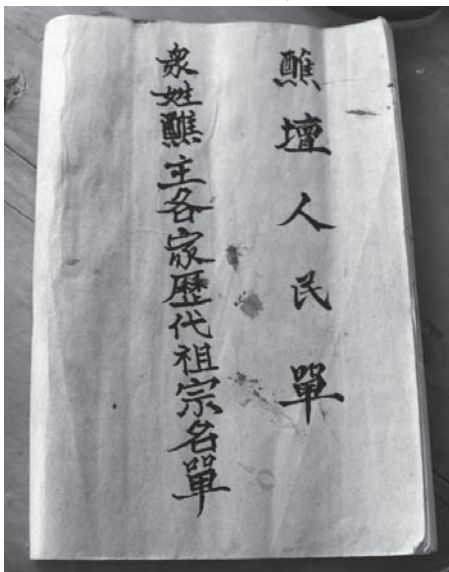 醮壇人民單
衆姓醮主各家歷代祖宗名單